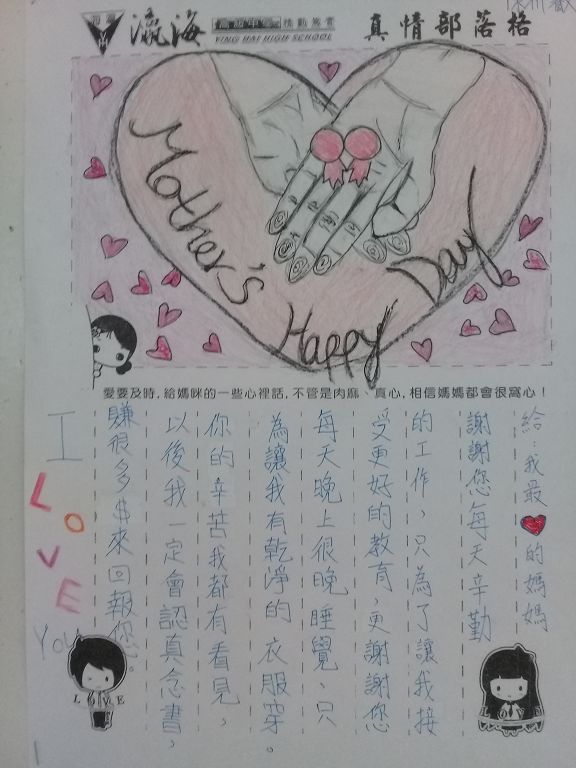 瀛海
高級中學
情勤篤實
YING HAI HIGH SCHOOL
真情部落格
Mother's
Happy
Day
愛要及時,給媽咪的一些心裡話,不管是肉麻、真心,相信媽媽都會很窩心!
給:我最❤的媽媽
謝謝您每天辛勤
的工作,只為了讓我接
受更好的教育,更謝謝您
每天晚上很晚睡覺、只
為讓我有乾淨的衣服穿。
你的辛苦我都有看見,
以後我一定會認真念書,
賺很多$來回報你。
I LOVE You
LOVE